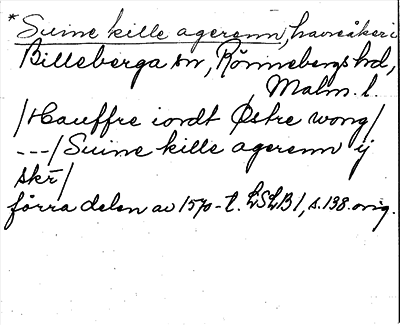 *Suine kille agerenn, havreåker i
Billeberga sn, Rönnebergs hd,
Malm. l.
/Hauffre iordt Østre wong/
---/Suine kille agerenn ij
skr/
förra delen av 1570-t. LSLB1, s. 138. orig.